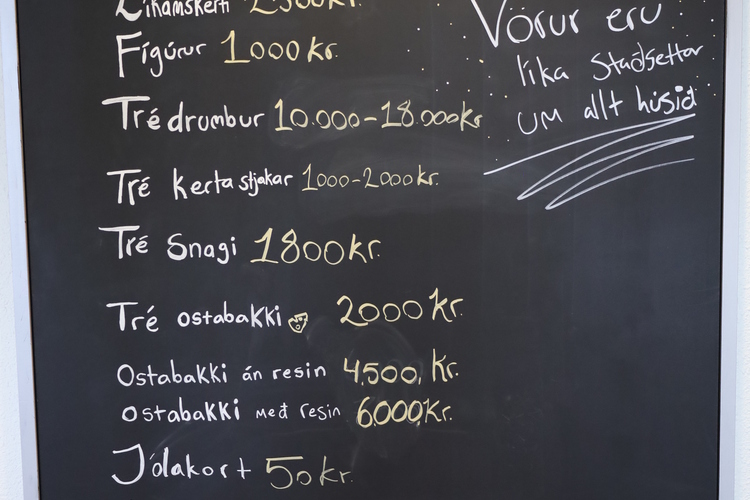 Fígúrur 1000 kr.
Tré drumbur 10.000-18.000kr
Tré kerta stjakar 1000-2000 kr.
Tré Snagi 1800 kr.
Tré ostabakki 2000 kr.
Ostabakki án resin 4500, kr.
ostabakki með resin 6000, kr.
Jólakort 50 kr.
Vörur eru
líka staðsettar
um allt húsið